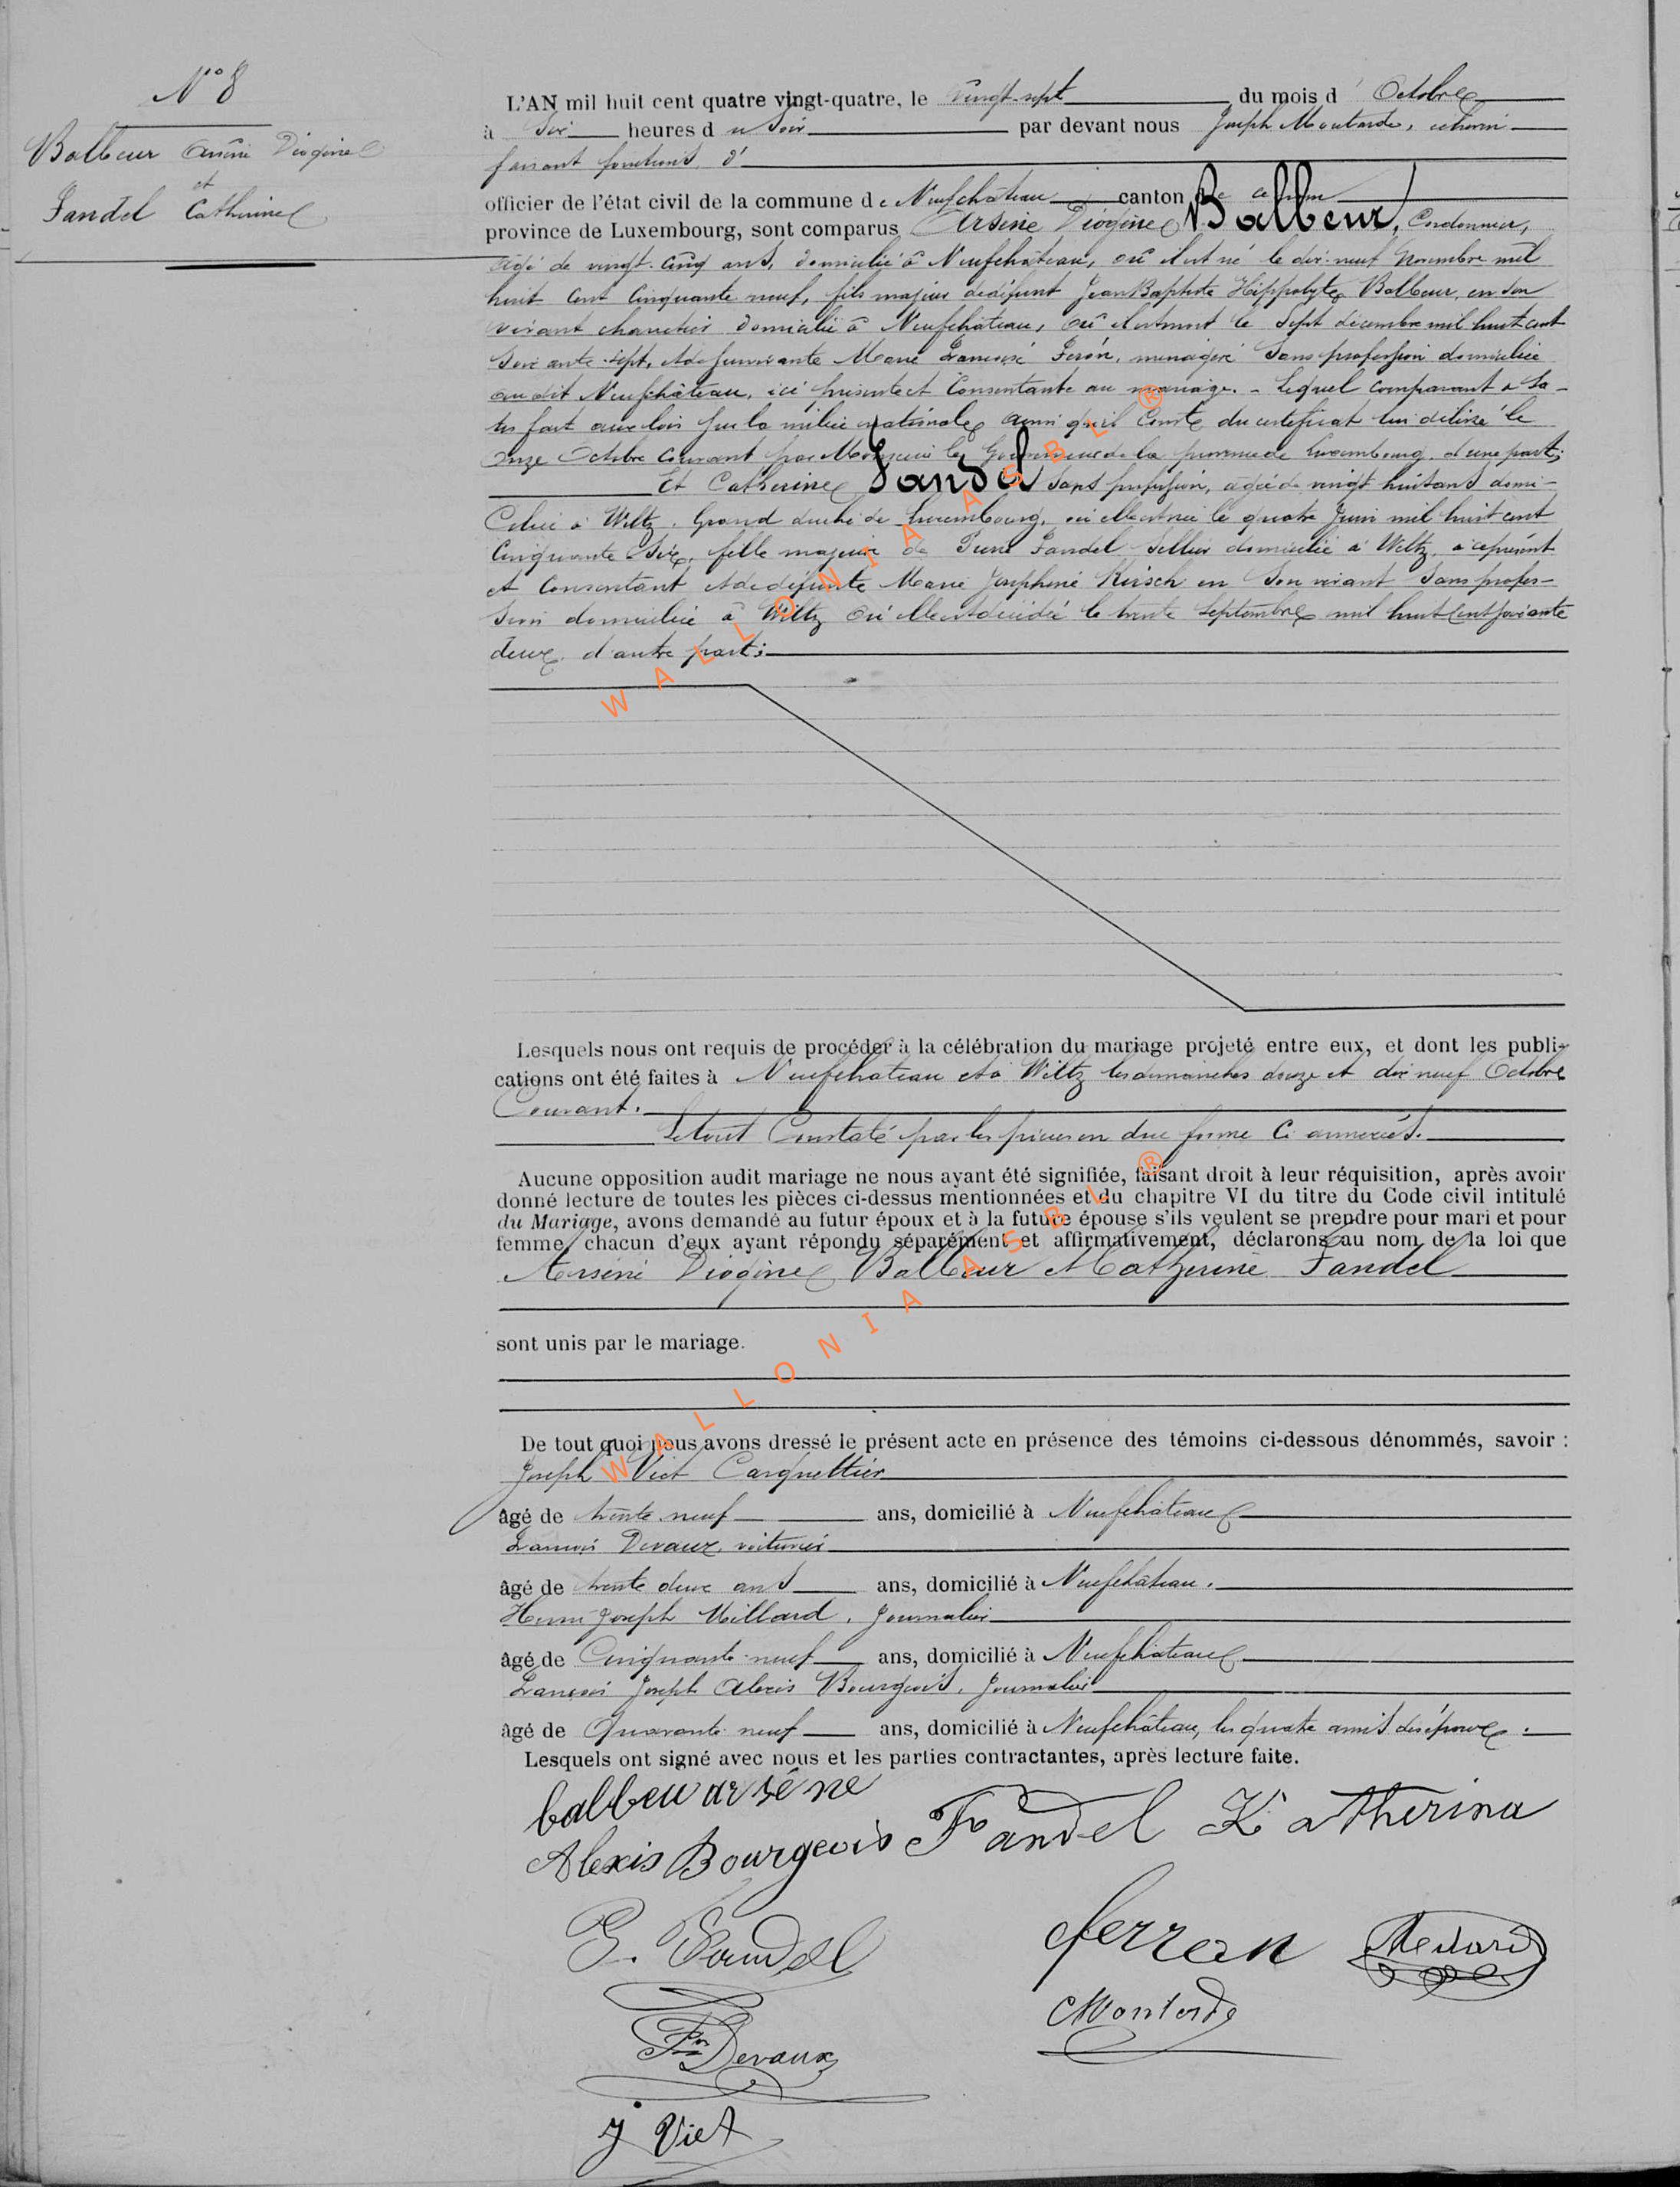 N° 8
Balbeur Arsène Diogène
et
Fandel Catherine
L'AN mil huit cent quatre vingt-quatre, le vingt-sept du mois d'Octobre
à Six heures du Soir par devant nous Joseph Moutarde, échevin
faisant fonctions d'
officier de l'état civil de la commune de Neufchâteau canton de ce nom
province de Luxembourg, sont comparus Arsène Diogène Balbeur, Cordonnier,
âgé de vingt-cinq ans, domicilié à Neufchâteau, où il est né le dix-neuf Novembre mil
huit cent cinquante neuf, fils majeur de défunt Jean Baptiste Hippolyte Balbeur, en son
vivant domicilié à Neufchâteau, où il est mort le Sept décembre mil huit cent
soixante-sept, et de survivante Marie Françoise ménagère Sans profession domiciliée
audit Neufchâteau, ici présente et Consentante au mariage. – Lequel comparant a sa-
tisfait aux lois sur la milice nationale ainsi qu'il Conste du certificat lui délivré le
onze Octobre Courant par Monsieur le Gouverneur de la province de Luxembourg, d'une part;
Et Catherine Fandel Sans profession, âgée de vingt huit ans domi-
ciliée à Wiltz, Grand duché de Luxembourg, où elle est née le quatre Juin mil huit cent
Cinquante Six, fille majeure de Pierre Fandel Sellier domicilié à Wiltz, à ce présent
et Consentant et de défunte Marie Josephine Kirsch en Son vivant Sans profes-
sion domiciliée à Wiltz où elle est décédée le trente Septembre mil huit cent soixante
deux, d'autre part;
Lesquels nous ont requis de procéder à la célébration du mariage projeté entre eux, et dont les publi-
cations ont été faites à Neufchâteau et à Wiltz les dimanches douze et dix neuf Octobre
Courant.
Le tout Constaté par les pièces en due forme Ci annexées.
Aucune opposition audit mariage ne nous ayant été signifiée, faisant droit à leur réquisition, après avoir
donné lecture de toutes les pièces ci-dessus mentionnées et du chapitre VI du titre du Code civil intitulé
du Mariage, avons demandé au futur époux et à la future épouse s'ils veulent se prendre pour mari et pour
femme, chacun d'eux ayant répondu séparément et affirmativement, déclarons au nom de la loi que
Arsène Diogène Balbeur et Catherine Fandel
sont unis par le mariage.
De tout quoi nous avons dressé le présent acte en présence des témoins ci-dessous dénommés, savoir :
Joseph Viet Casquettier
âgé de trente-neuf ans, domicilié à Neufchâteau
François Devaux, voiturier
âgé de trente deux ans ans, domicilié à Neufchâteau.
Henri Joseph Journalier
âgé de Cinquante-neuf ans, domicilié à Neufchâteau
François Joseph Alexis Bourgeois, Journalier
âgé de Quarante-neuf ans, domicilié à Neufchâteau, les quatre amis des époux.
Lesquels ont signé avec nous et les parties contractantes, après lecture faite.
balbeur arséne
Alexis Bourgeois Fandel Katherina
P. Fandel
ferron
Fr Devaux
J Viet
WALLONIA ASBL ®
WALLONIA ASBL ®